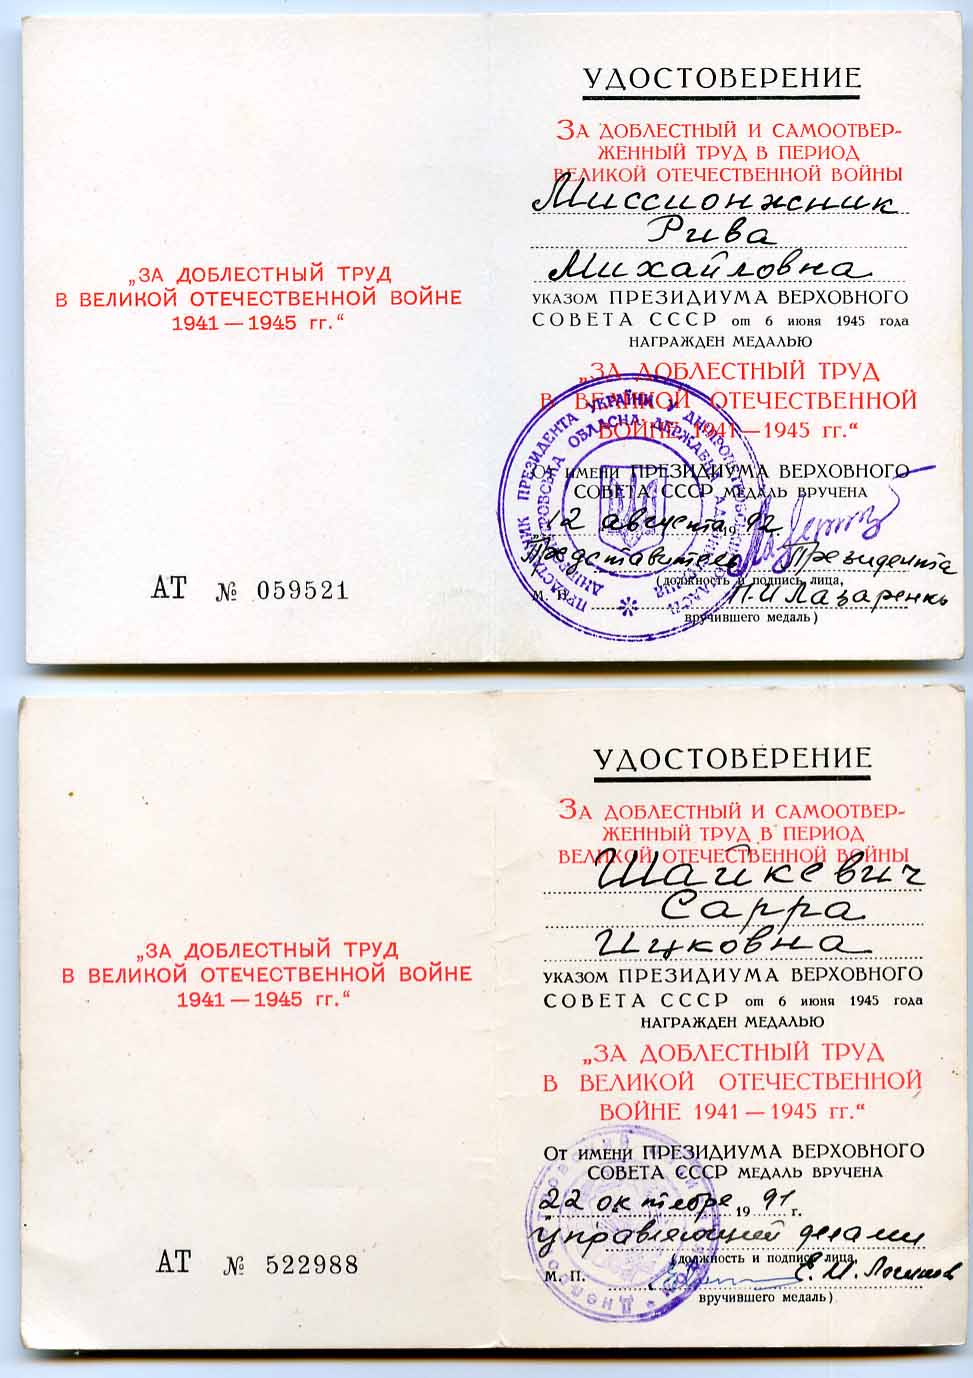 „ЗА ДОБЛЕСТНЫЙ ТРУД
В ВЕЛИКОЙ ОТЕЧЕСТВЕННОЙ ВОЙНЕ
1941 — 1945 гг.“
АТ № 059521
УДОСТОВЕРЕНИЕ
ЗА ДОБЛЕСТНЫЙ И САМООТВЕР-
ЖЕННЫЙ ТРУД В ПЕРИОД
ВЕЛИКОЙ ОТЕЧЕСТВЕННОЙ ВОЙНЫ
Миссионжник
Рива
Михайловна
УКАЗОМ ПРЕЗИДИУМА ВЕРХОВНОГО
СОВЕТА СССР от 6 июня 1945 года
НАГРАЖДЕН МЕДАЛЬЮ
„ЗА ДОБЛЕСТНЫЙ ТРУД
В ВЕЛИКОЙ ОТЕЧЕСТВЕННОЙ
ВОЙНЕ 1941 — 1945 гг.“
ОТ ИМЕНИ ПРЕЗИДИУМА ВЕРХОВНОГО
СОВЕТА СССР МЕДАЛЬ ВРУЧЕНА
„12 августа 1992 г.
Представитель Президента
(должность и подпись лица,
М. П. П.И Лазаренко
вручившего медаль)
ПРЕДСТАВНИК ПРЕЗИДЕНТА УКРАЇНИ У ДНІПРОПЕТРОВСЬКІЙ ОБЛАСТІ
ДНІПРОПЕТРОВСЬКА ОБЛАСНА ДЕРЖАВНА АДМІНІСТРАЦІЯ
„ЗА ДОБЛЕСТНЫЙ ТРУД
В ВЕЛИКОЙ ОТЕЧЕСТВЕННОЙ ВОЙНЕ
1941 — 1945 гг.“
АТ № 522988
УДОСТОВЕРЕНИЕ
ЗА ДОБЛЕСТНЫЙ И САМООТВЕР-
ЖЕННЫЙ ТРУД В ПЕРИОД
ВЕЛИКОЙ ОТЕЧЕСТВЕННОЙ ВОЙНЫ
Шайкевич
Сарра
Ицковна
УКАЗОМ ПРЕЗИДИУМА ВЕРХОВНОГО
СОВЕТА СССР от 6 июня 1945 года
НАГРАЖДЕН МЕДАЛЬЮ
„ЗА ДОБЛЕСТНЫЙ ТРУД
В ВЕЛИКОЙ ОТЕЧЕСТВЕННОЙ
ВОЙНЕ 1941 — 1945 гг.“
ОТ ИМЕНИ ПРЕЗИДИУМА ВЕРХОВНОГО
СОВЕТА СССР МЕДАЛЬ ВРУЧЕНА
„22 октября 1991 г.
управляющий делами
(должность и подпись лица,
М. П. Е.И.
вручившего медаль)